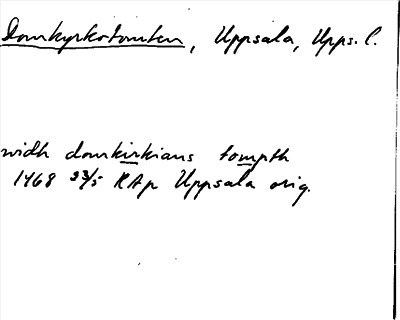 Domkyrkotomten, Uppsala, Upps. l.
widh domkirkians tompth
1468 23/5 RAp Uppsala orig.